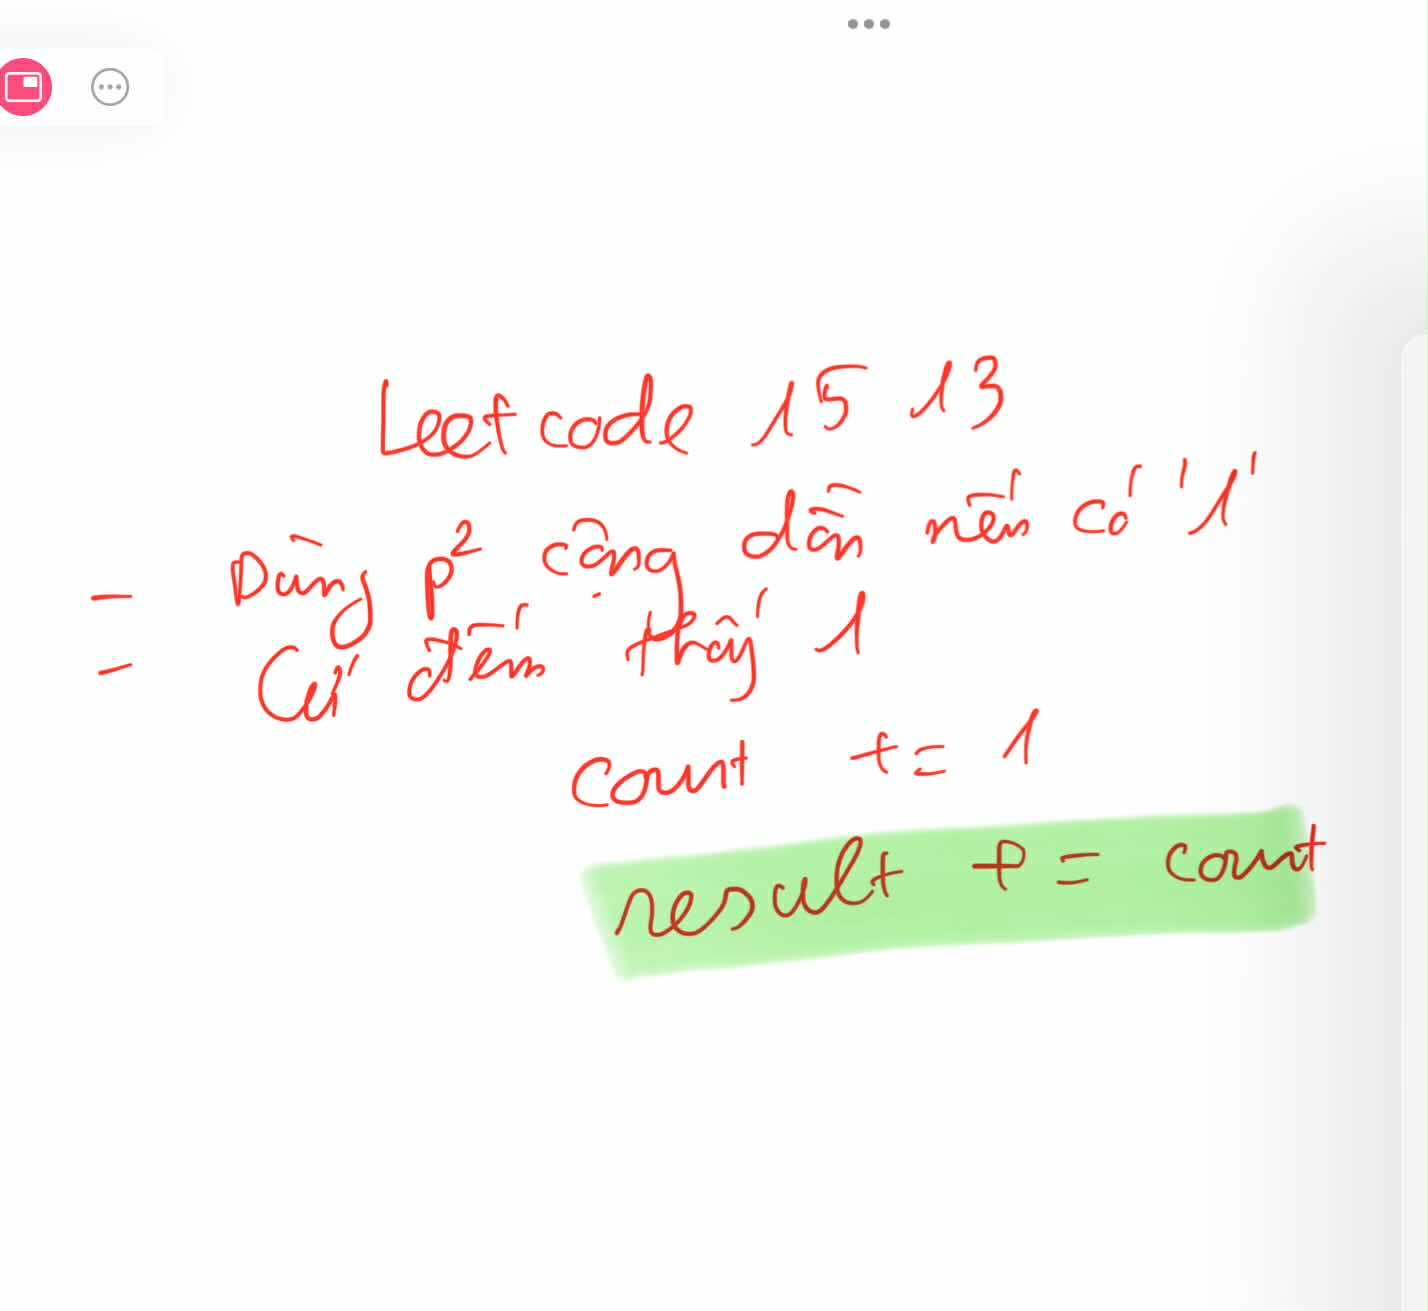 Leetcode 1513
- Dùng p² cộng dần nếu có '1'
- Cứ đếm thấy 1
count += 1
result += count